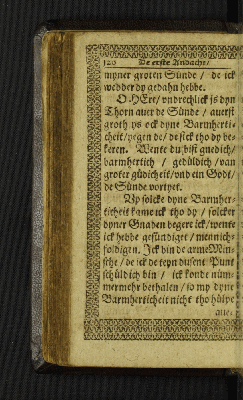 120 De erste Andacht/
myner groten Sünde / de ick
wedder dy gedahn hebbe.
O HEre/ vndrechlick is dyn
Thorn auer de Sünde / auerst
groth ys ock dyne Barmherti-
cheit/yegen de/ de sick tho dy be-
keren. Wente du bist gnedich/
barmhertich / gedüldich /van
groter güdicheit/vnd ein Godt/
de Sünde vortyet.
Vp solcke dyne Barmher-
ticheit kame ick tho dy / solcker
dyner Gnaden begere ick/wente
ick hebbe gesündiget / mennich-
foldigen. Ick bin de arme Min-
sche/ de ick de teyn dusent Punt
schüldich bin / ick konde num-
mermehr bethalen/ so my dyne
Barmherticheit nicht tho hülpe